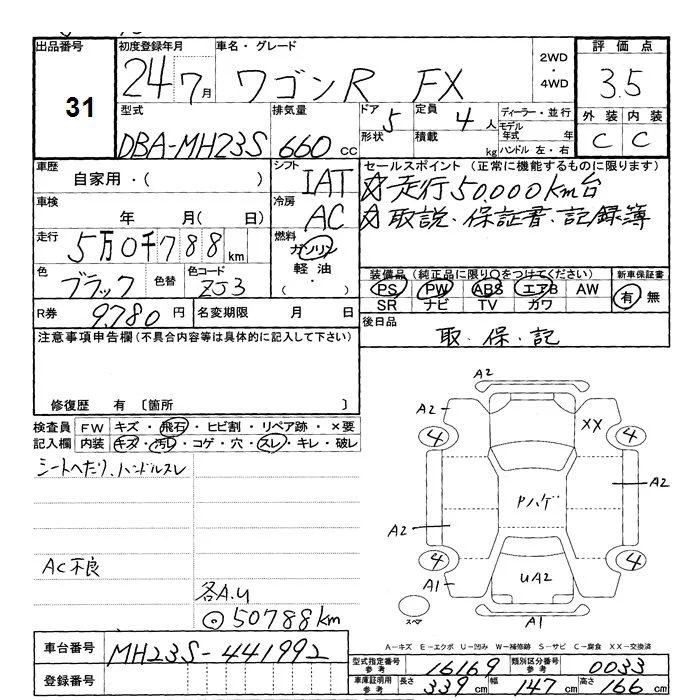 出品番号 初度登録年月 車名・グレード 2WD ・ 4WD 評価点
31 24 7月 ワゴンR FX 3.5
型式 排気量 ドア 形状 5 定員 4人 積載 kg ディーラー・並行 モデル年式 年 ハンドル 左・右 外装 内装
DBA-MH23S 660 cc C C
車歴 自家用・( ) シフト IAT セールスポイント (正常に機能するものに限ります)
☆走行50.000km台
車検 年 月( 日) 冷房 AC ☆取説・保証書・記録簿
走行 5万0千788km 燃料 ガソリン 軽油 ・( )
色 ブラック 色替 色コード ZJ3 装備品 (純正品に限り○をつけてください) 新車保証書
PS PW ABS エアB AW 有・無
SR ナビ TV カワ
R券 9.780円 名変期限 月 日 後日品
取・保・記
注意事項申告欄(不具合内容等は具体的に記入して下さい)
修復歴 有 〔箇所 〕
検査員 FW キズ・飛石・ヒビ割・リペア跡・×要
記入欄 内装 キズ・汚れ・コゲ・穴・スレ・キレ・破レ
シートへたり、ハンドルスレ
AC不良
各A.U
◎50788km
A2
A2 XX
4 4
A2
Pハゲ
A2
4 4
A1 UA2
スペア
A1
A-キズ E-エクボ U-凹み W-補修跡 S-サビ C-腐食 XX-交換済
車台番号 MH23S-441992
型式指定番号 参考 16169 類別区分番号 参考 0033
登録番号
車庫証明用 参考 長さ 339cm 幅 147cm 高さ 166cm